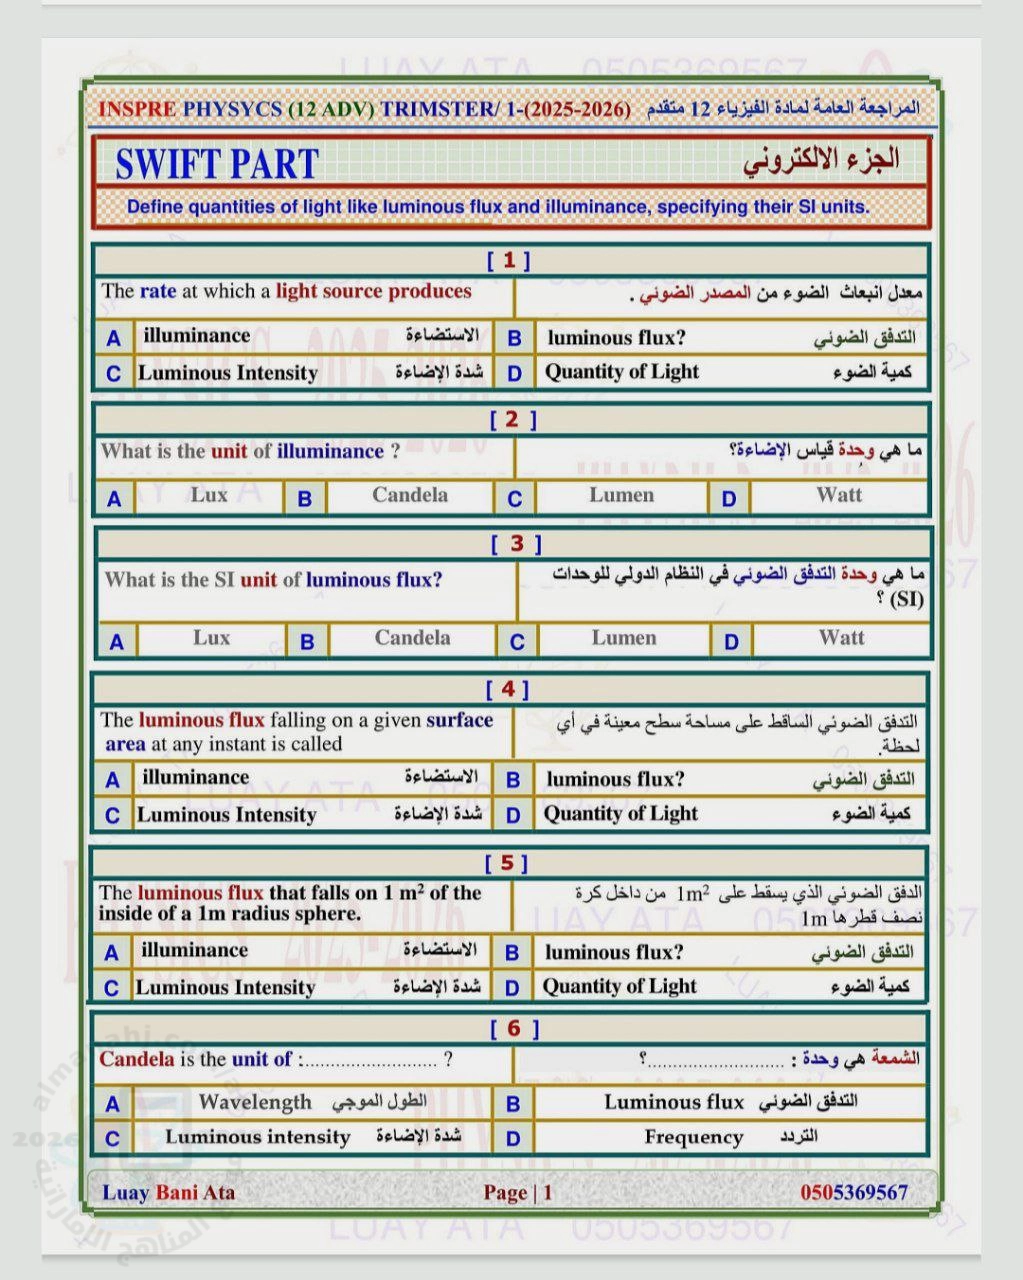 LUAY ATA 0505369567
INSPRE PHYSYCS (12 ADV) TRIMSTER/ 1-(2025-2026) المراجعة العامة لمادة الفيزياء 12 متقدم
SWIFT PART الجزء الالكتروني
Define quantities of light like luminous flux and illuminance, specifying their SI units.
[ 1 ]
The rate at which a light source produces معدل انبعاث الضوء من المصدر الضوئي .
A illuminance الاستضاءة B luminous flux? التدفق الضوئي
C Luminous Intensity شدة الإضاءة D Quantity of Light كمية الضوء
[ 2 ]
What is the unit of illuminance ? ما هي وحدة قياس الإضاءة؟
A Lux B Candela C Lumen D Watt
[ 3 ]
What is the SI unit of luminous flux? ما هي وحدة التدفق الضوئي في النظام الدولي للوحدات
(SI) ؟
A Lux B Candela C Lumen D Watt
[ 4 ]
The luminous flux falling on a given surface التدفق الضوئي الساقط على مساحة سطح معينة في أي
area at any instant is called لحظة.
A illuminance الاستضاءة B luminous flux? التدفق الضوئي
C Luminous Intensity شدة الإضاءة D Quantity of Light كمية الضوء
[ 5 ]
The luminous flux that falls on 1 m² of the الدفق الضوئي الذي يسقط على 1m² من داخل كرة
inside of a 1m radius sphere. نصف قطرها 1m
A illuminance الاستضاءة B luminous flux? التدفق الضوئي
C Luminous Intensity شدة الإضاءة D Quantity of Light كمية الضوء
[ 6 ]
Candela is the unit of :......................... ? الشمعة هي وحدة : .........................؟
A Wavelength الطول الموجي B Luminous flux التدفق الضوئي
C Luminous intensity شدة الإضاءة D Frequency التردد
Luay Bani Ata Page | 1 0505369567
LUAY ATA 0505369567